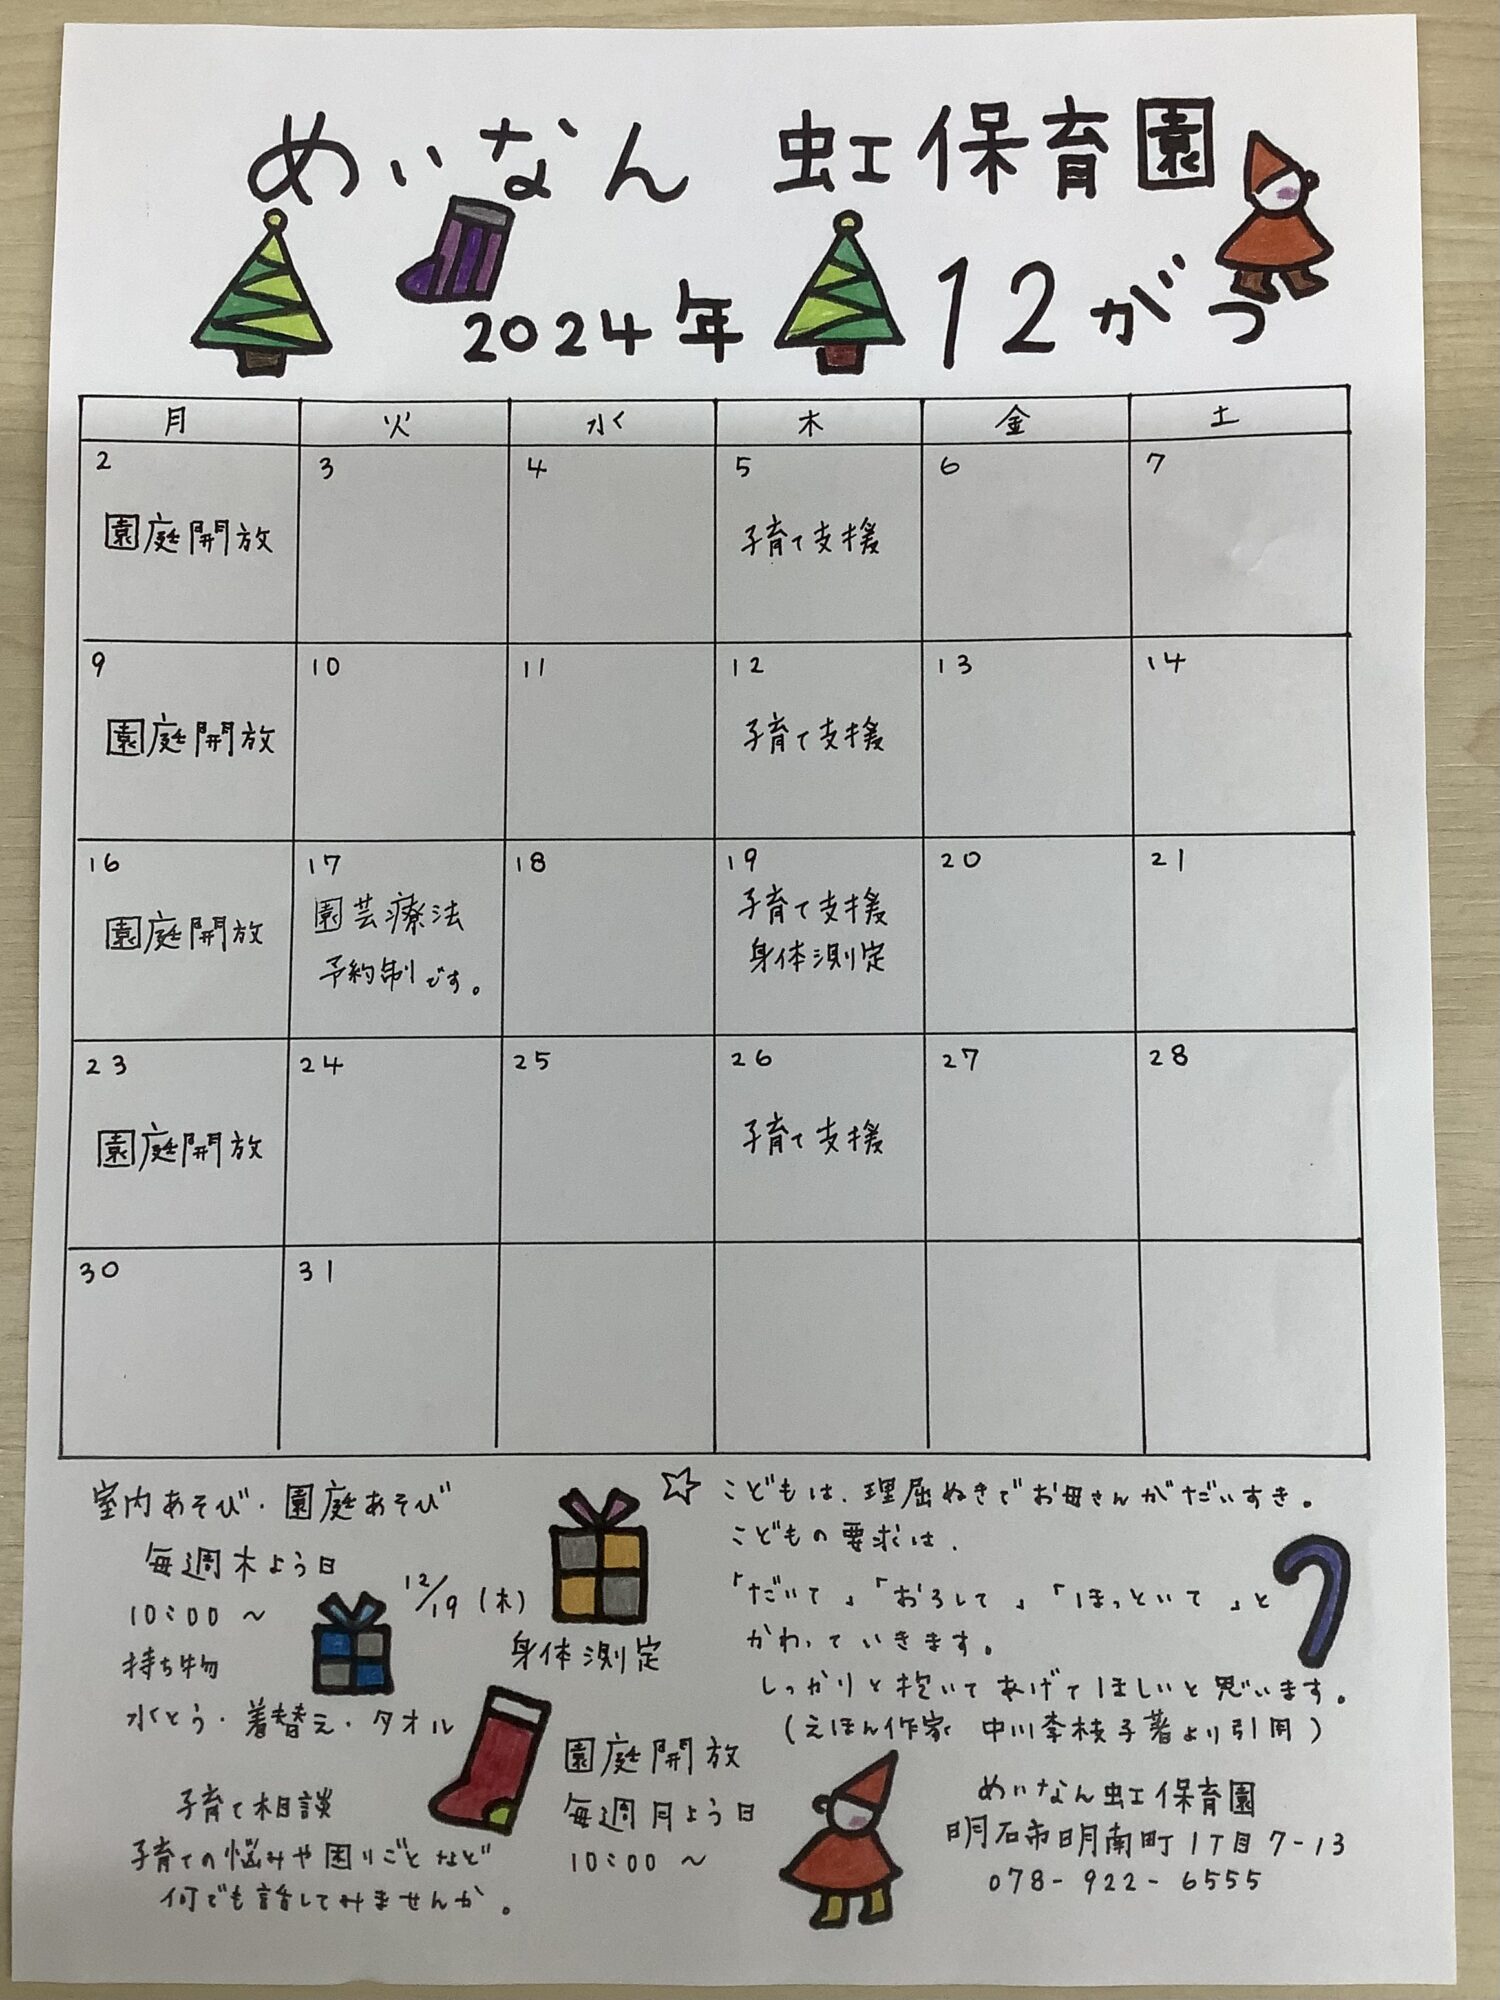 めいなん 虹保育園
2024年 12がつ
月 火 水 木 金 土
2 3 4 5 6 7
園庭開放 子育て支援
9 10 11 12 13 14
園庭開放 子育て支援
16 17 18 19 20 21
園庭開放 園芸療法 子育て支援
予約制です。 身体測定
23 24 25 26 27 28
園庭開放 子育て支援
30 31
室内あそび・園庭あそび
毎週木よう日
10:00～
持ち物
水とう・着替え・タオル
12/19(木)
身体測定
子育て相談
子育ての悩みや困りごとなど
何でも話してみませんか。
園庭開放
毎週月よう日
10:00～
☆こどもは、理屈ぬきでお母さんがだいすき。
こどもの要求は、
「だいて」「おろして」「ほっといて」と
かわっていきます。
しっかりと抱いてあげてほしいと思います。
(えほん作家 中川李枝子著より引用)
めいなん虹保育園
明石市明南町1丁目7-13
078-922-6555